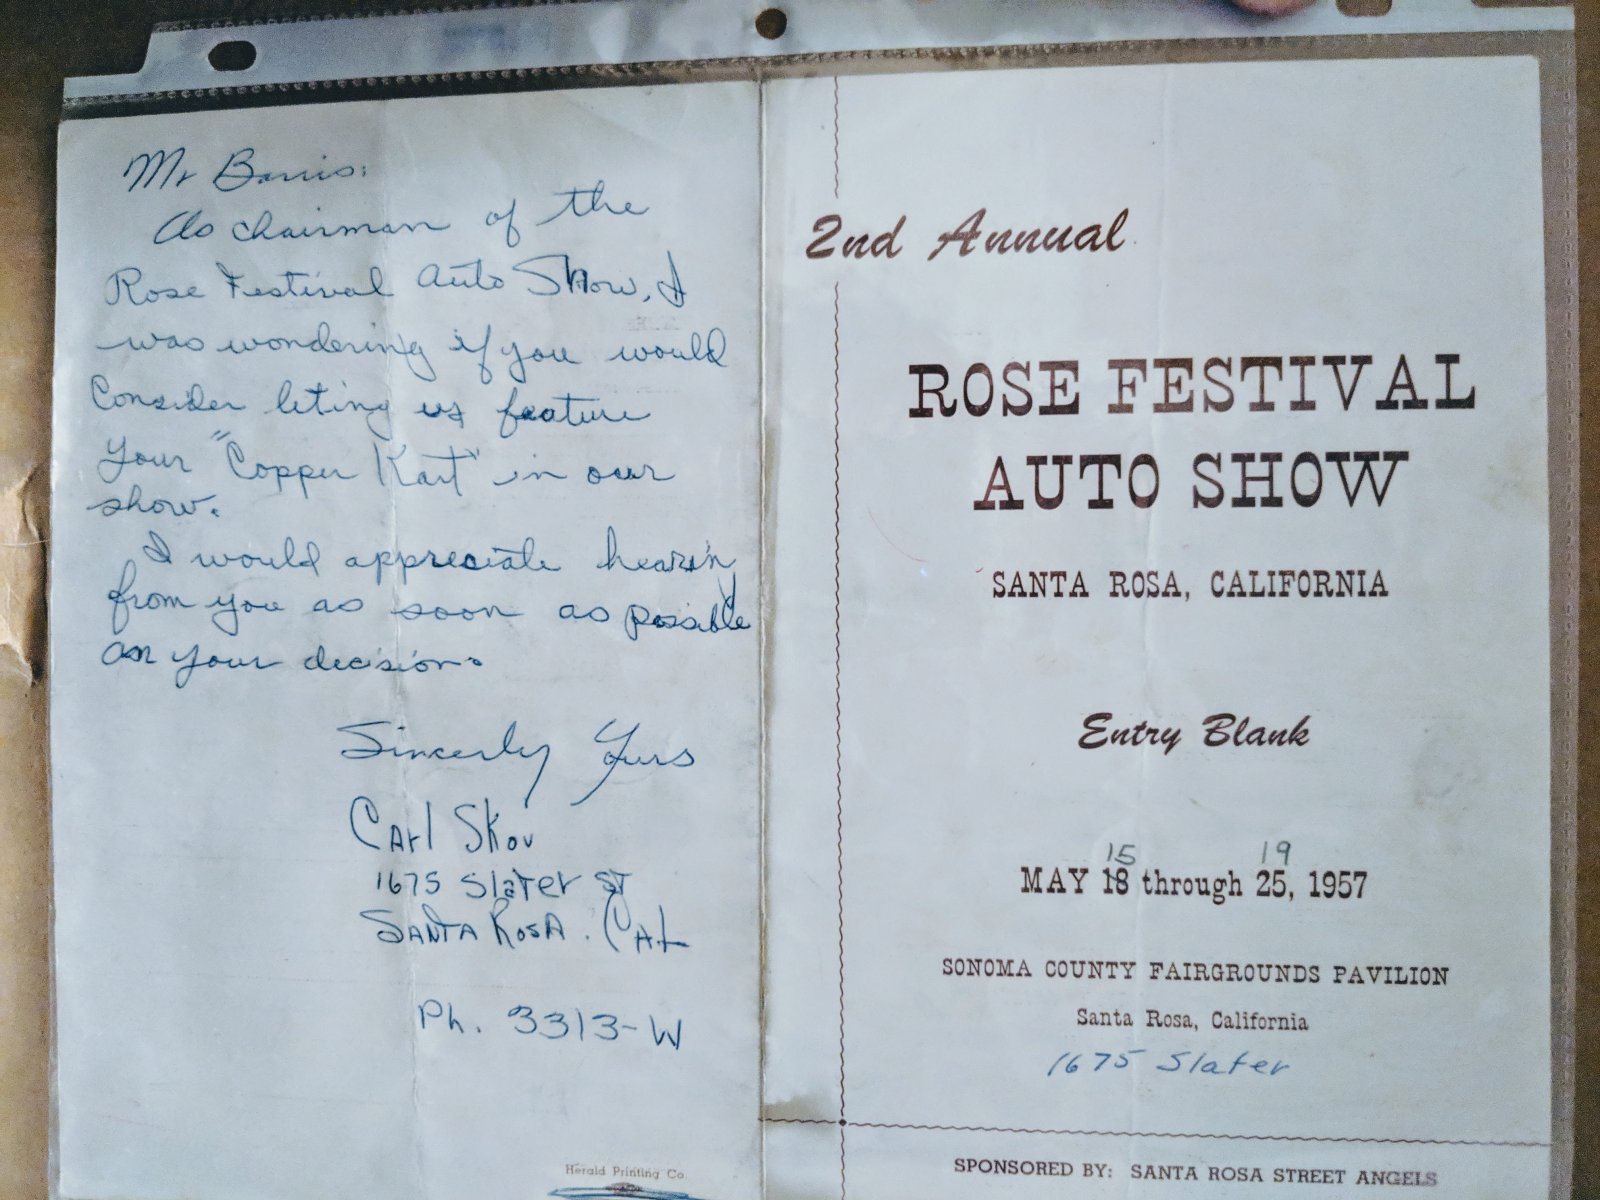 Mr Barris:
As chairman of the
Rose Festival Auto Show, I
was wondering if you would
Consider leting us feature
your "Copper Kart" in our
show.
I would appreciate hearing
from you as soon as possible
on your decision.
Sincerly Yurs
Carl Skov
1675 Slater ST
SANTA ROSA. CAL
Ph. 3313-W
Herald Printing Co.
2nd Annual
ROSE FESTIVAL
AUTO SHOW
SANTA ROSA, CALIFORNIA
Entry Blank
15 19
MAY 18 through 25, 1957
SONOMA COUNTY FAIRGROUNDS PAVILION
Santa Rosa, California
1675 Slater
SPONSORED BY: SANTA ROSA STREET ANGELS